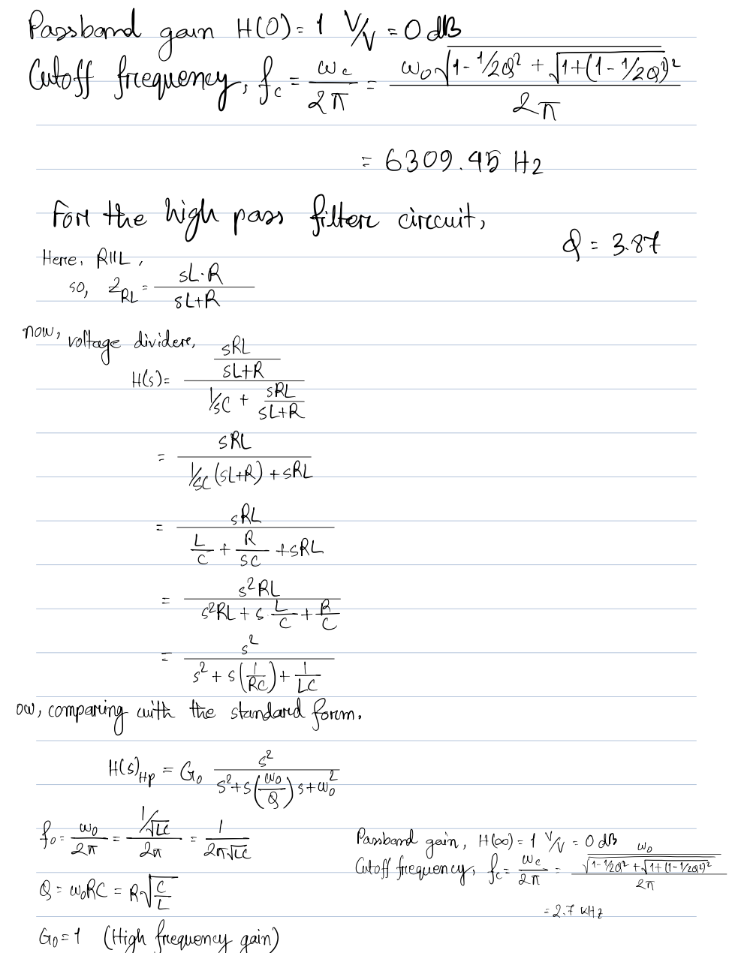 Passband gain H(0) = 1 V/V = 0 dB
Cutoff frequency, f_c = ω_c / 2π = ω_0 √(1 - 1/2Q² + √(1+(1 - 1/2Q²)²)) / 2π
= 6309.45 Hz
For the high pass filter circuit,
Q = 3.87
Here, R||L,
so, Z_RL = sL·R / (sL+R)
now, voltage divider,
H(s) = (sRL / (sL+R)) / (1/sC + sRL / (sL+R))
= sRL / (1/sC (sL+R) + sRL)
= sRL / (L/C + R/sC + sRL)
= s²RL / (s²RL + s L/C + R/C)
= s² / (s² + s(1/RC) + 1/LC)
ow, comparing with the standard form.
H(s)_HP = G_0 s² / (s² + s(ω_0/Q)s + ω_0²)
f_0 = ω_0 / 2π = (1/√LC) / 2π = 1 / 2π√LC
Q = ω_0RC = R√(C/L)
G_0 = 1 (High frequency gain)
Passband gain, H(∞) = 1 V/V = 0 dB
Cutoff frequency, f_c = ω_c / 2π = (ω_0 / √(1 - 1/2Q² + √(1+(1 - 1/2Q²)²))) / 2π
= 2.7 kHz